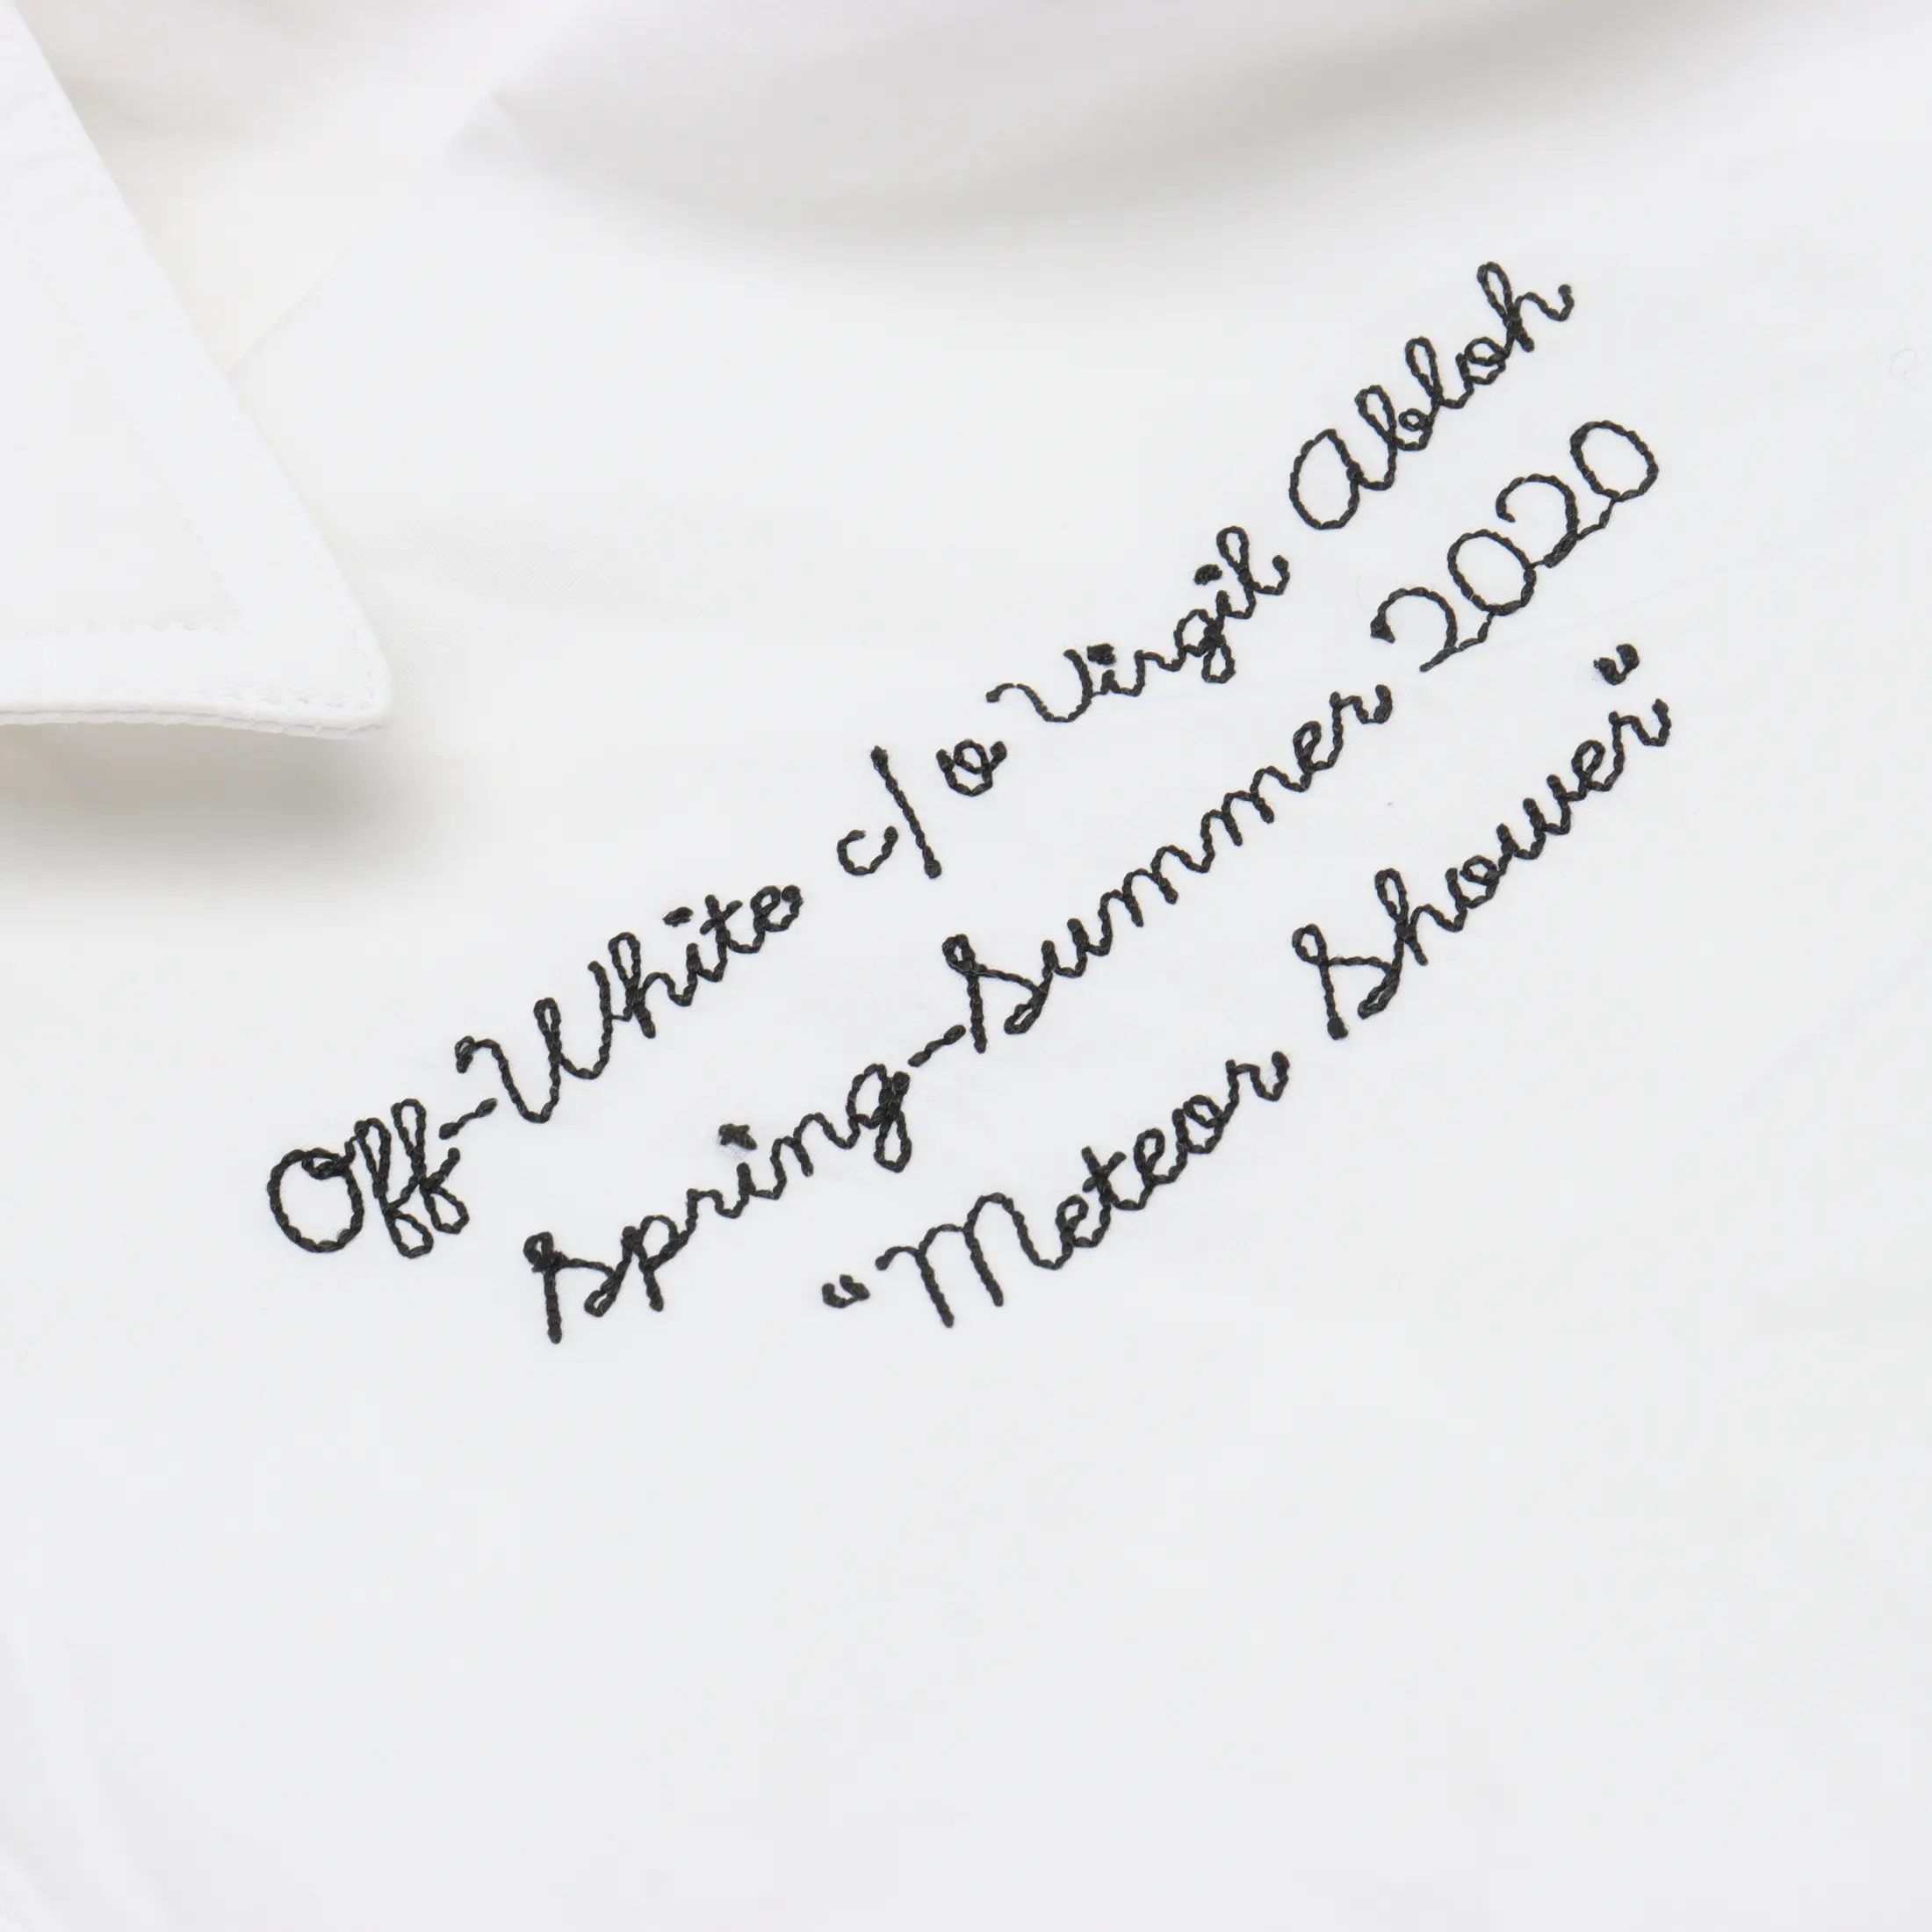 Off-White c/o Virgil Abloh
Spring-Summer 2020
“Meteor Shower”